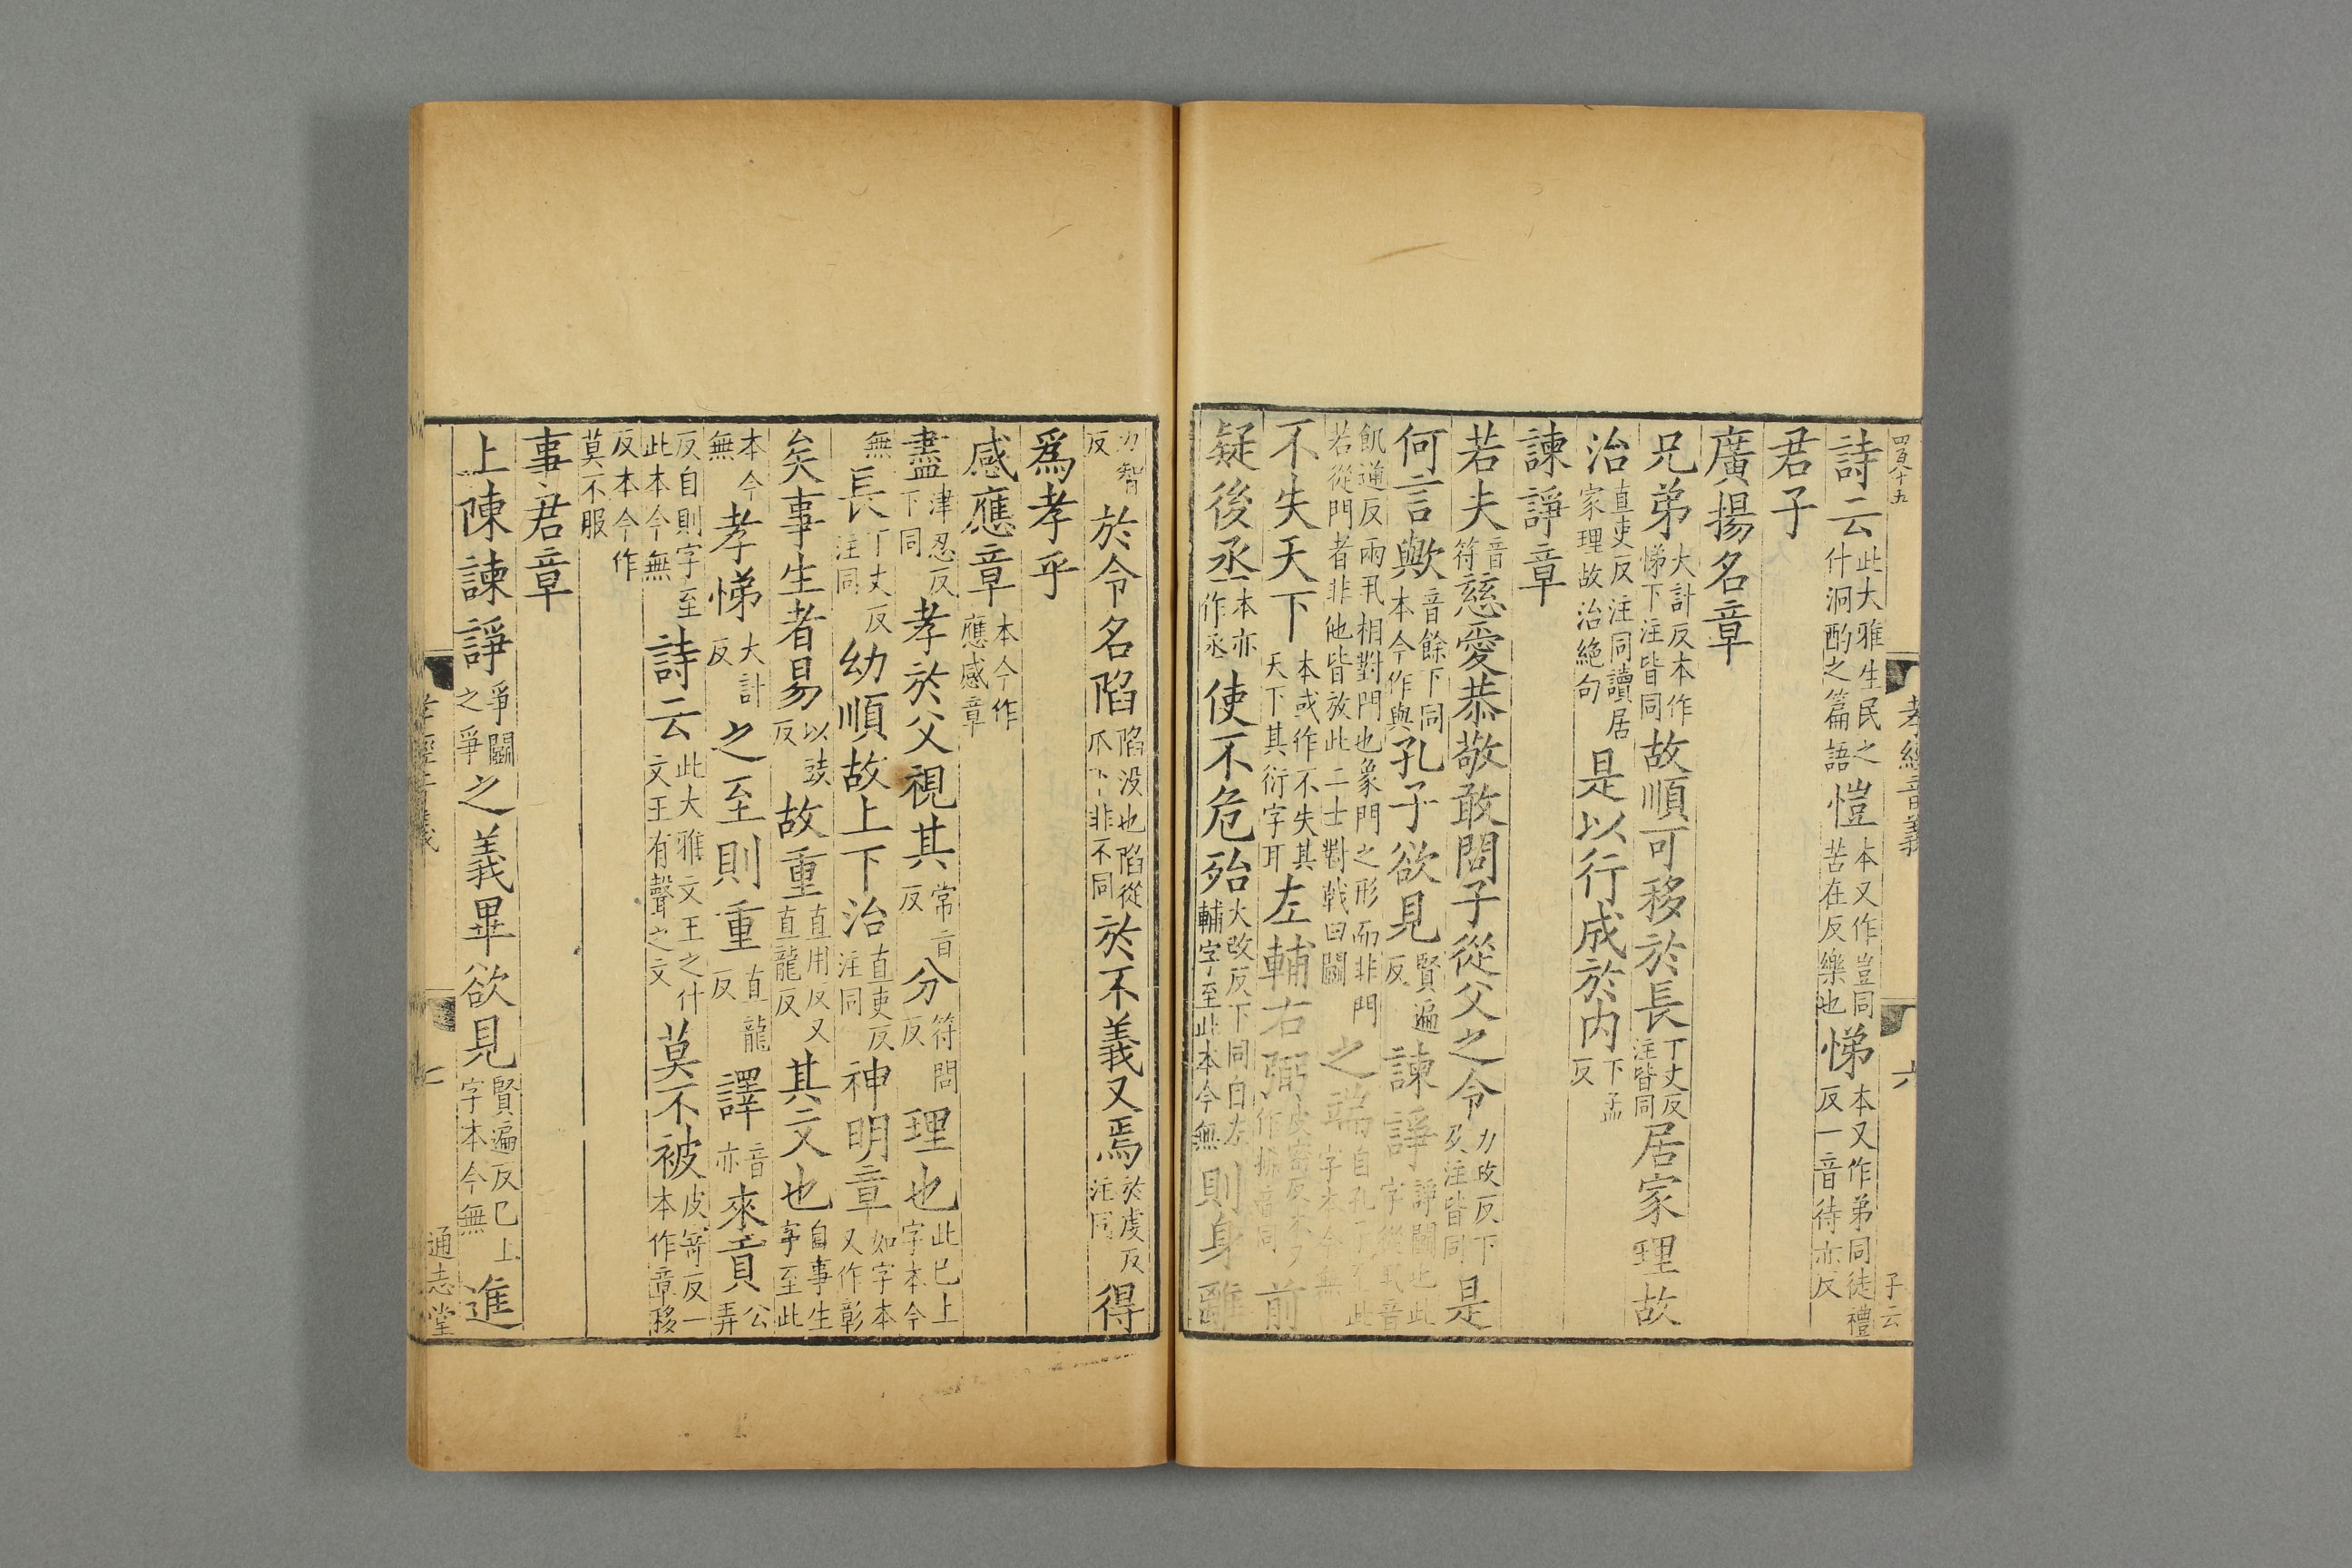 四百八十五
孝經音義
六
子云
詩云此大雅生民之什泂酌之篇語愷本又作豈同苦在反樂也悌本又作弟同徒禮反一音待亦反
君子
廣揚名章
兄弟大計反本作悌下注皆同故順可移於長丁丈反注皆同居家理故
治直吏反注同讀居家理故治絶句是以行成於内下孟反
諫諍章
若夫音符慈愛恭敬敢問子從父之令力政反下及注皆同是
何言歟音餘下同本今作與孔子欲見賢遍反諫諍諍鬬也此字從丮音
飢逈反兩丮相對門也象門之形而非門若從門者非他皆放此二士對戟曰鬬之端自孔子至此字本今無
不失天下本或作不失其天下其衍字耳左輔右弼皮密反本又作拂音同前
疑後丞本亦作氶使不危殆大改反下同自左輔字至此本今無則身離
力智反於令名陷陷没也陷從爪下非不同於不義又焉於虔反注同得
爲孝乎
感應章本今作應感章
盡津忍反下同孝於父視其常旨反分符問反理也此巳上字本今
無長丁丈反注同幼順故上下治直吏反注同神明章如字本又作彰
矣事生者易以豉反故重直用反又直龍反其文也自事生字至此
本今無孝悌大計反之至則重直龍反譯音亦來貢公弄
反自則字至此本今無詩云此大雅文王之什文王有聲之文莫不被皮寄反一本作章移
反本今作莫不服
事君章
上陳諫諍爭鬬之爭之義畢欲見賢遍反巳上字本今無進
孝經音義
七
通志堂